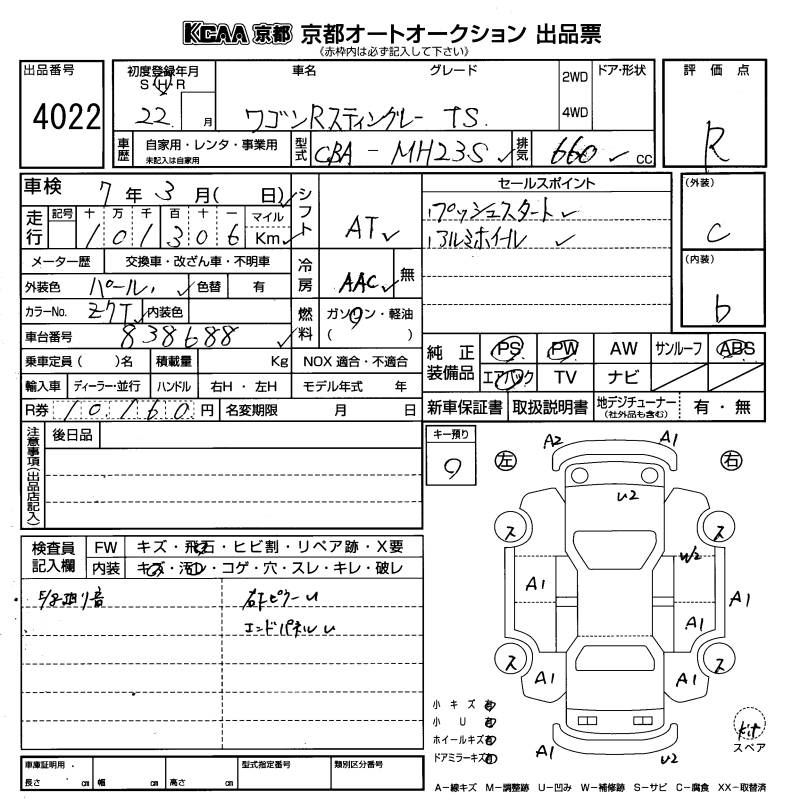 KCAA 京都 京都オートオークション 出品票
《赤枠内は必ず記入して下さい》
出品番号
4022
初度登録年月
S H R
22 月
車名 グレード
ワゴンRスティングレー TS
2WD
4WD
ドア・形状
評価点
R
車歴 自家用・レンタ・事業用
未記入は自家用
型式 CBA-MH23S
排気 660 cc
車検 7年 3月( 日)
走行 記号 十 万 千 百 十 一 マイル
101306 Km
シフト AT
セールスポイント
プッシュスタート
アルミホイール
(外装)
C
(内装)
b
メーター歴 交換車・改ざん車・不明車
冷房 AAC 無
外装色 パール 色替 有
カラーNo. Z7T 内装色
燃料 ガソリン・軽油
( )
車台番号 838688
純正装備品 PS PW AW サンルーフ ABS
エアバック TV ナビ
乗車定員( )名 積載量 Kg NOX 適合・不適合
輸入車 ディーラー・並行 ハンドル 右H・左H モデル年式 年
R券 10160円 名変期限 月 日
新車保証書 取扱説明書 地デジチューナー
(社外品も含む) 有・無
注意事項(出品店記入)
後日品
キー預り
9
A2 A1
左 右
U2
ス ス
W2
A1 A1
A1
ス ス
A1 A1
A1 U2
検査員記入欄 FW キズ・飛石・ヒビ割・リペア跡・X要
内装 キズ・汚れ・コゲ・穴・スレ・キレ・破レ
右ピラーU
エンドパネルU
小キズ 有
小U 有
ホイールキズ 有
ドアミラーキズ 有
kit
スペア
車庫証明用・
長さ cm 幅 cm 高さ cm
型式指定番号
類別区分番号
A-線キズ M-調整跡 U-凹み W-補修跡 S-サビ C-腐食 XX-取替済